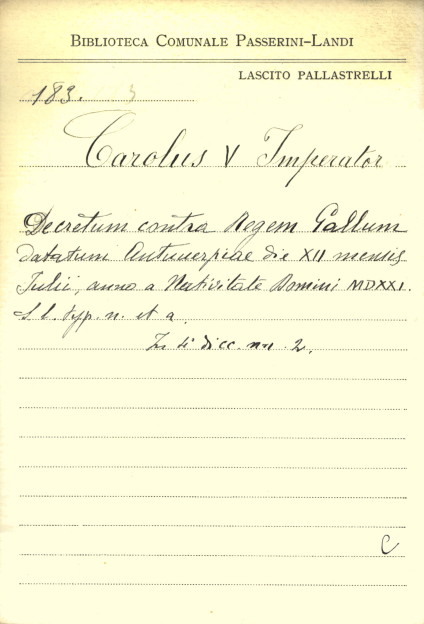 BIBLIOTECA COMUNALE PASSERINI-LANDI
LASCITO PALLASTRELLI
183.
Carolus V Imperator
Decretum contra Regem Gallum
datatum Antuuerpiae die XII mensis
Julii, anno a Nativitate Domini MDXXI.
S. l. typ. n. et a.
In 4° picc. nn. 2.
C